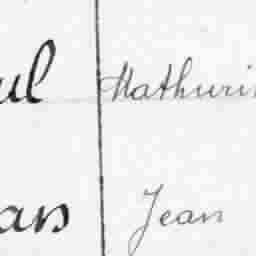 ul Mathuri
ans Jean